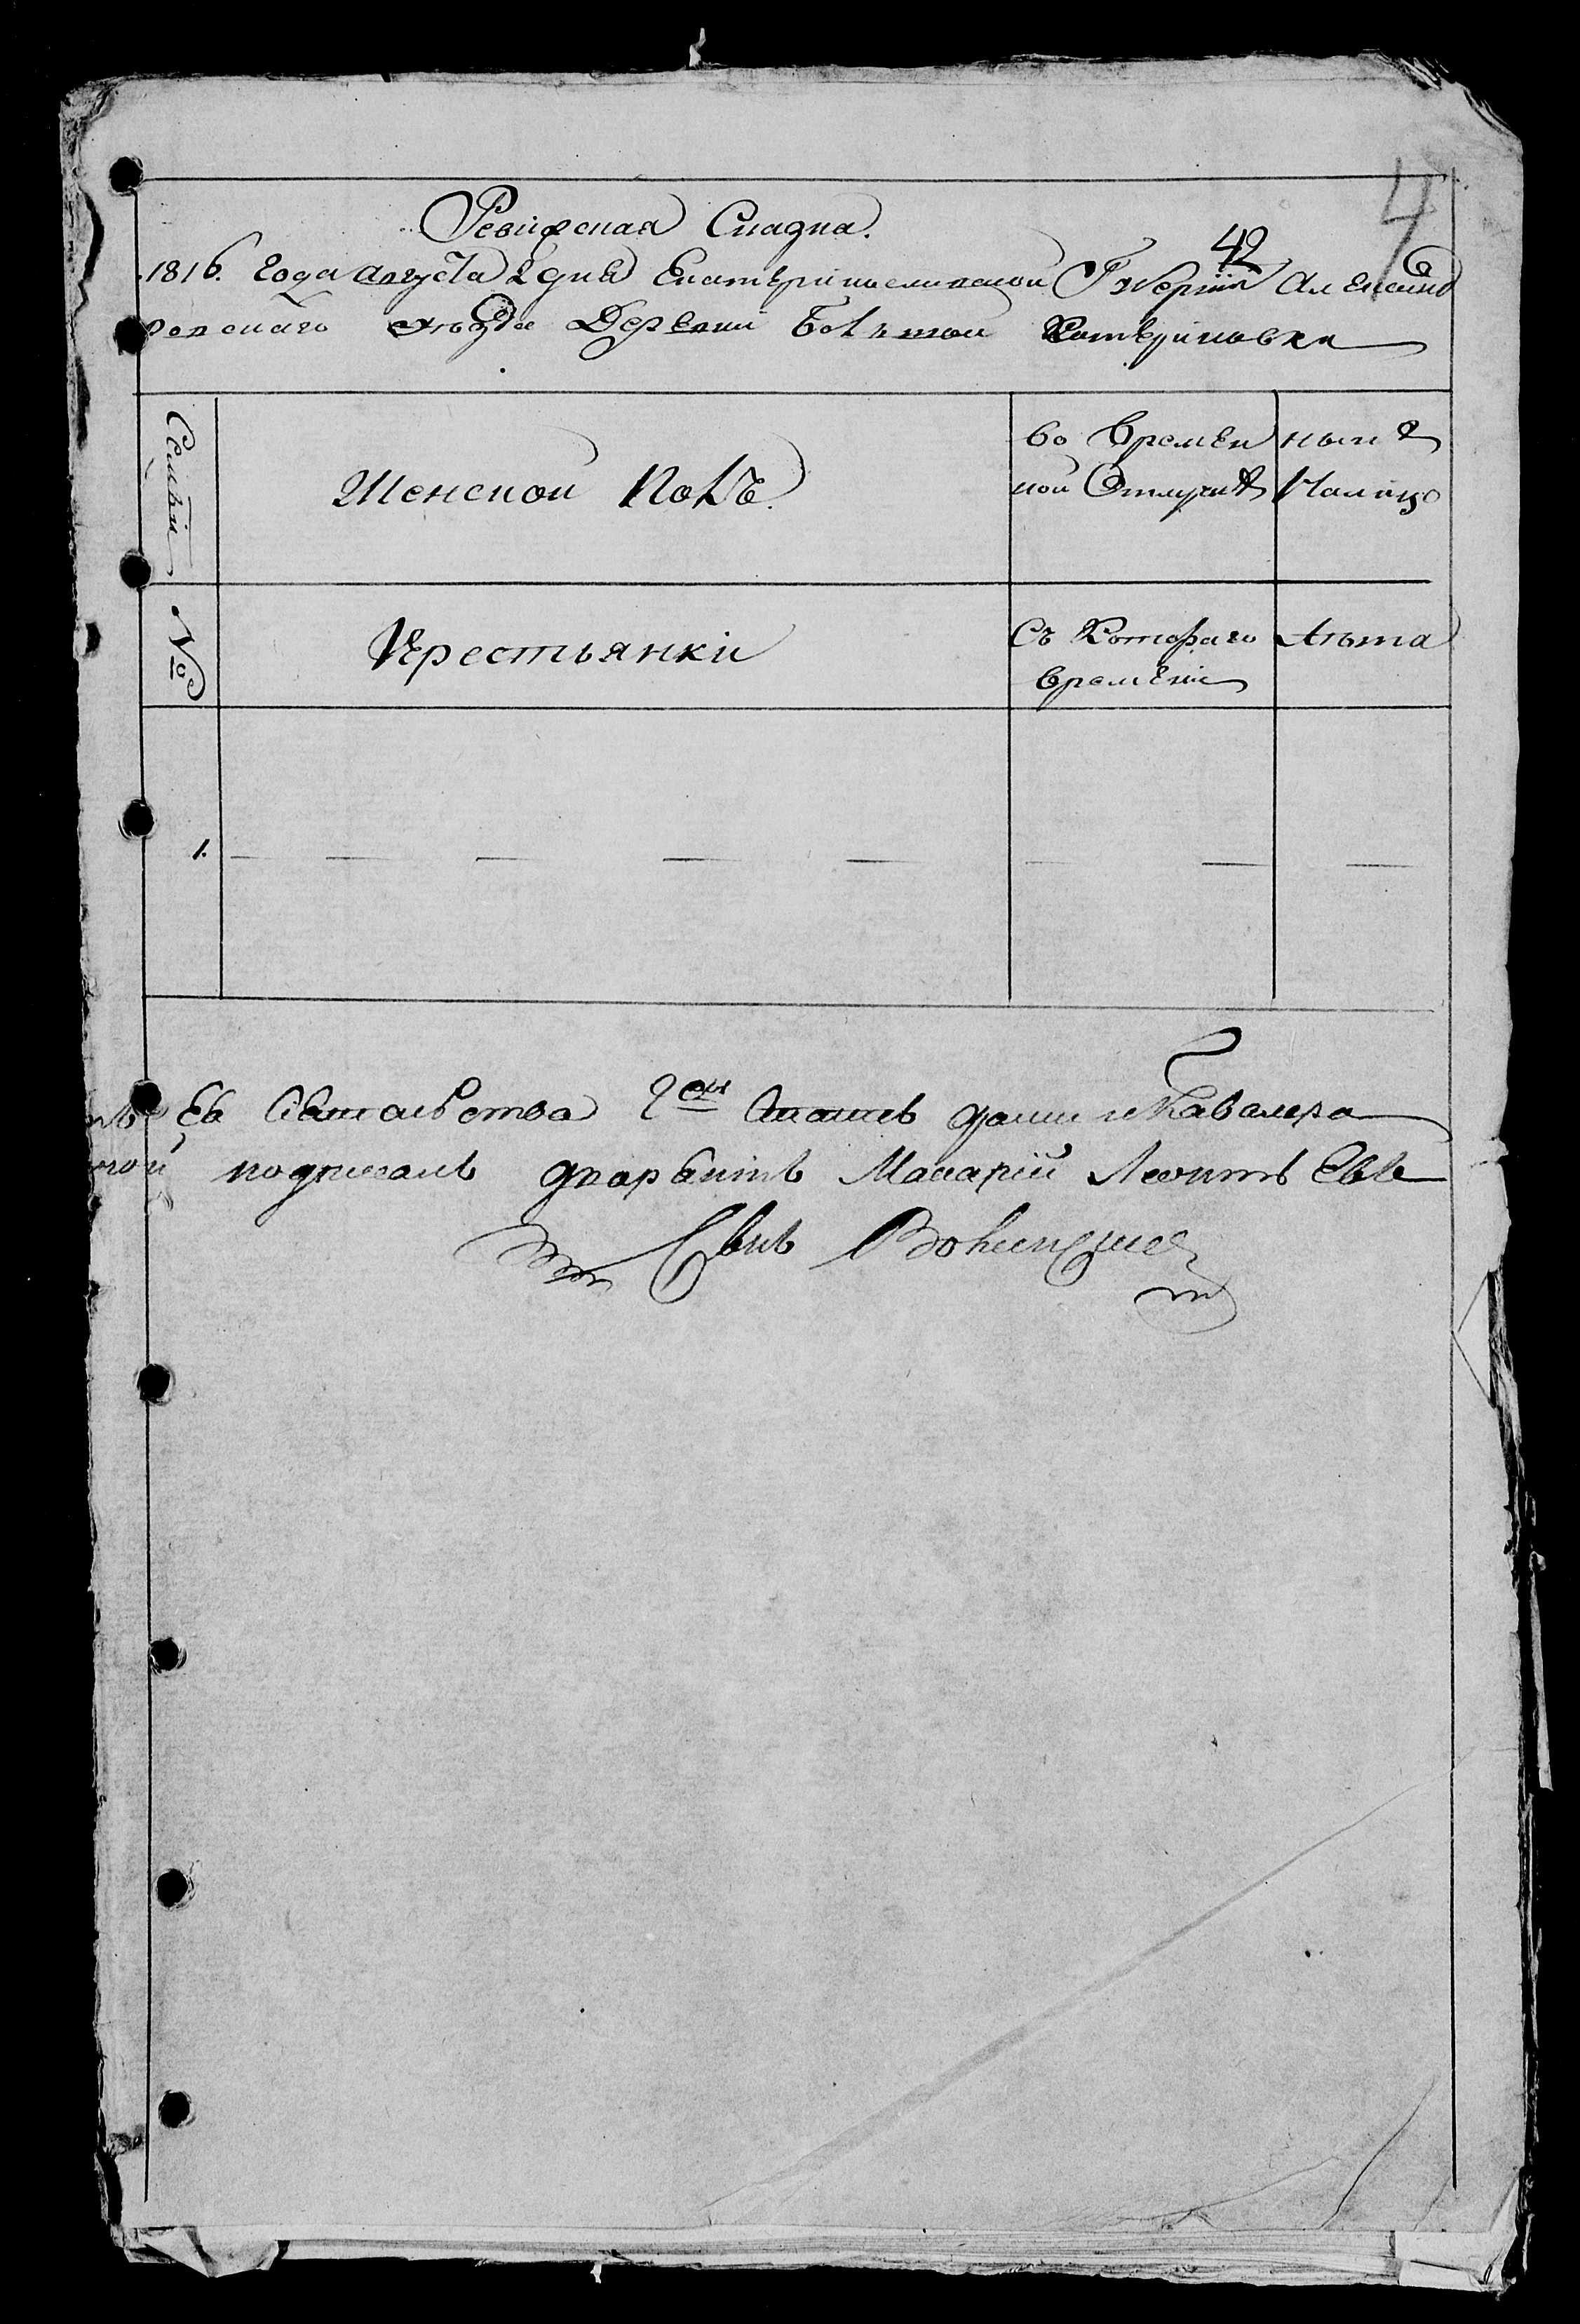 4
42
Ревижская Скаска.
1816. года августа 2 дня Екатериnославской Губернии Александ
ровскаго уезда ДеревниБотьмои Катериновки
Семьи
Женской Полъ.
во Времен
ной Отлучкѣ
ныне
На лицо
№
Крестьянки
Съ Котораго
времени
Лѣта
1.
Ев Сиятельства Статсъ дамы и Кавалера
подписалъ дворянинъ Макарій Леонтъ Евъ
Сынъ